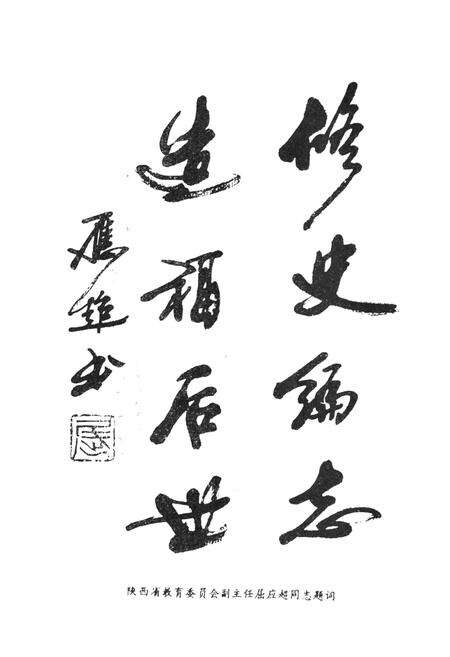 修史编志
造福后世
应超书
屈
陕西省教育委员会副主任屈应超同志题词